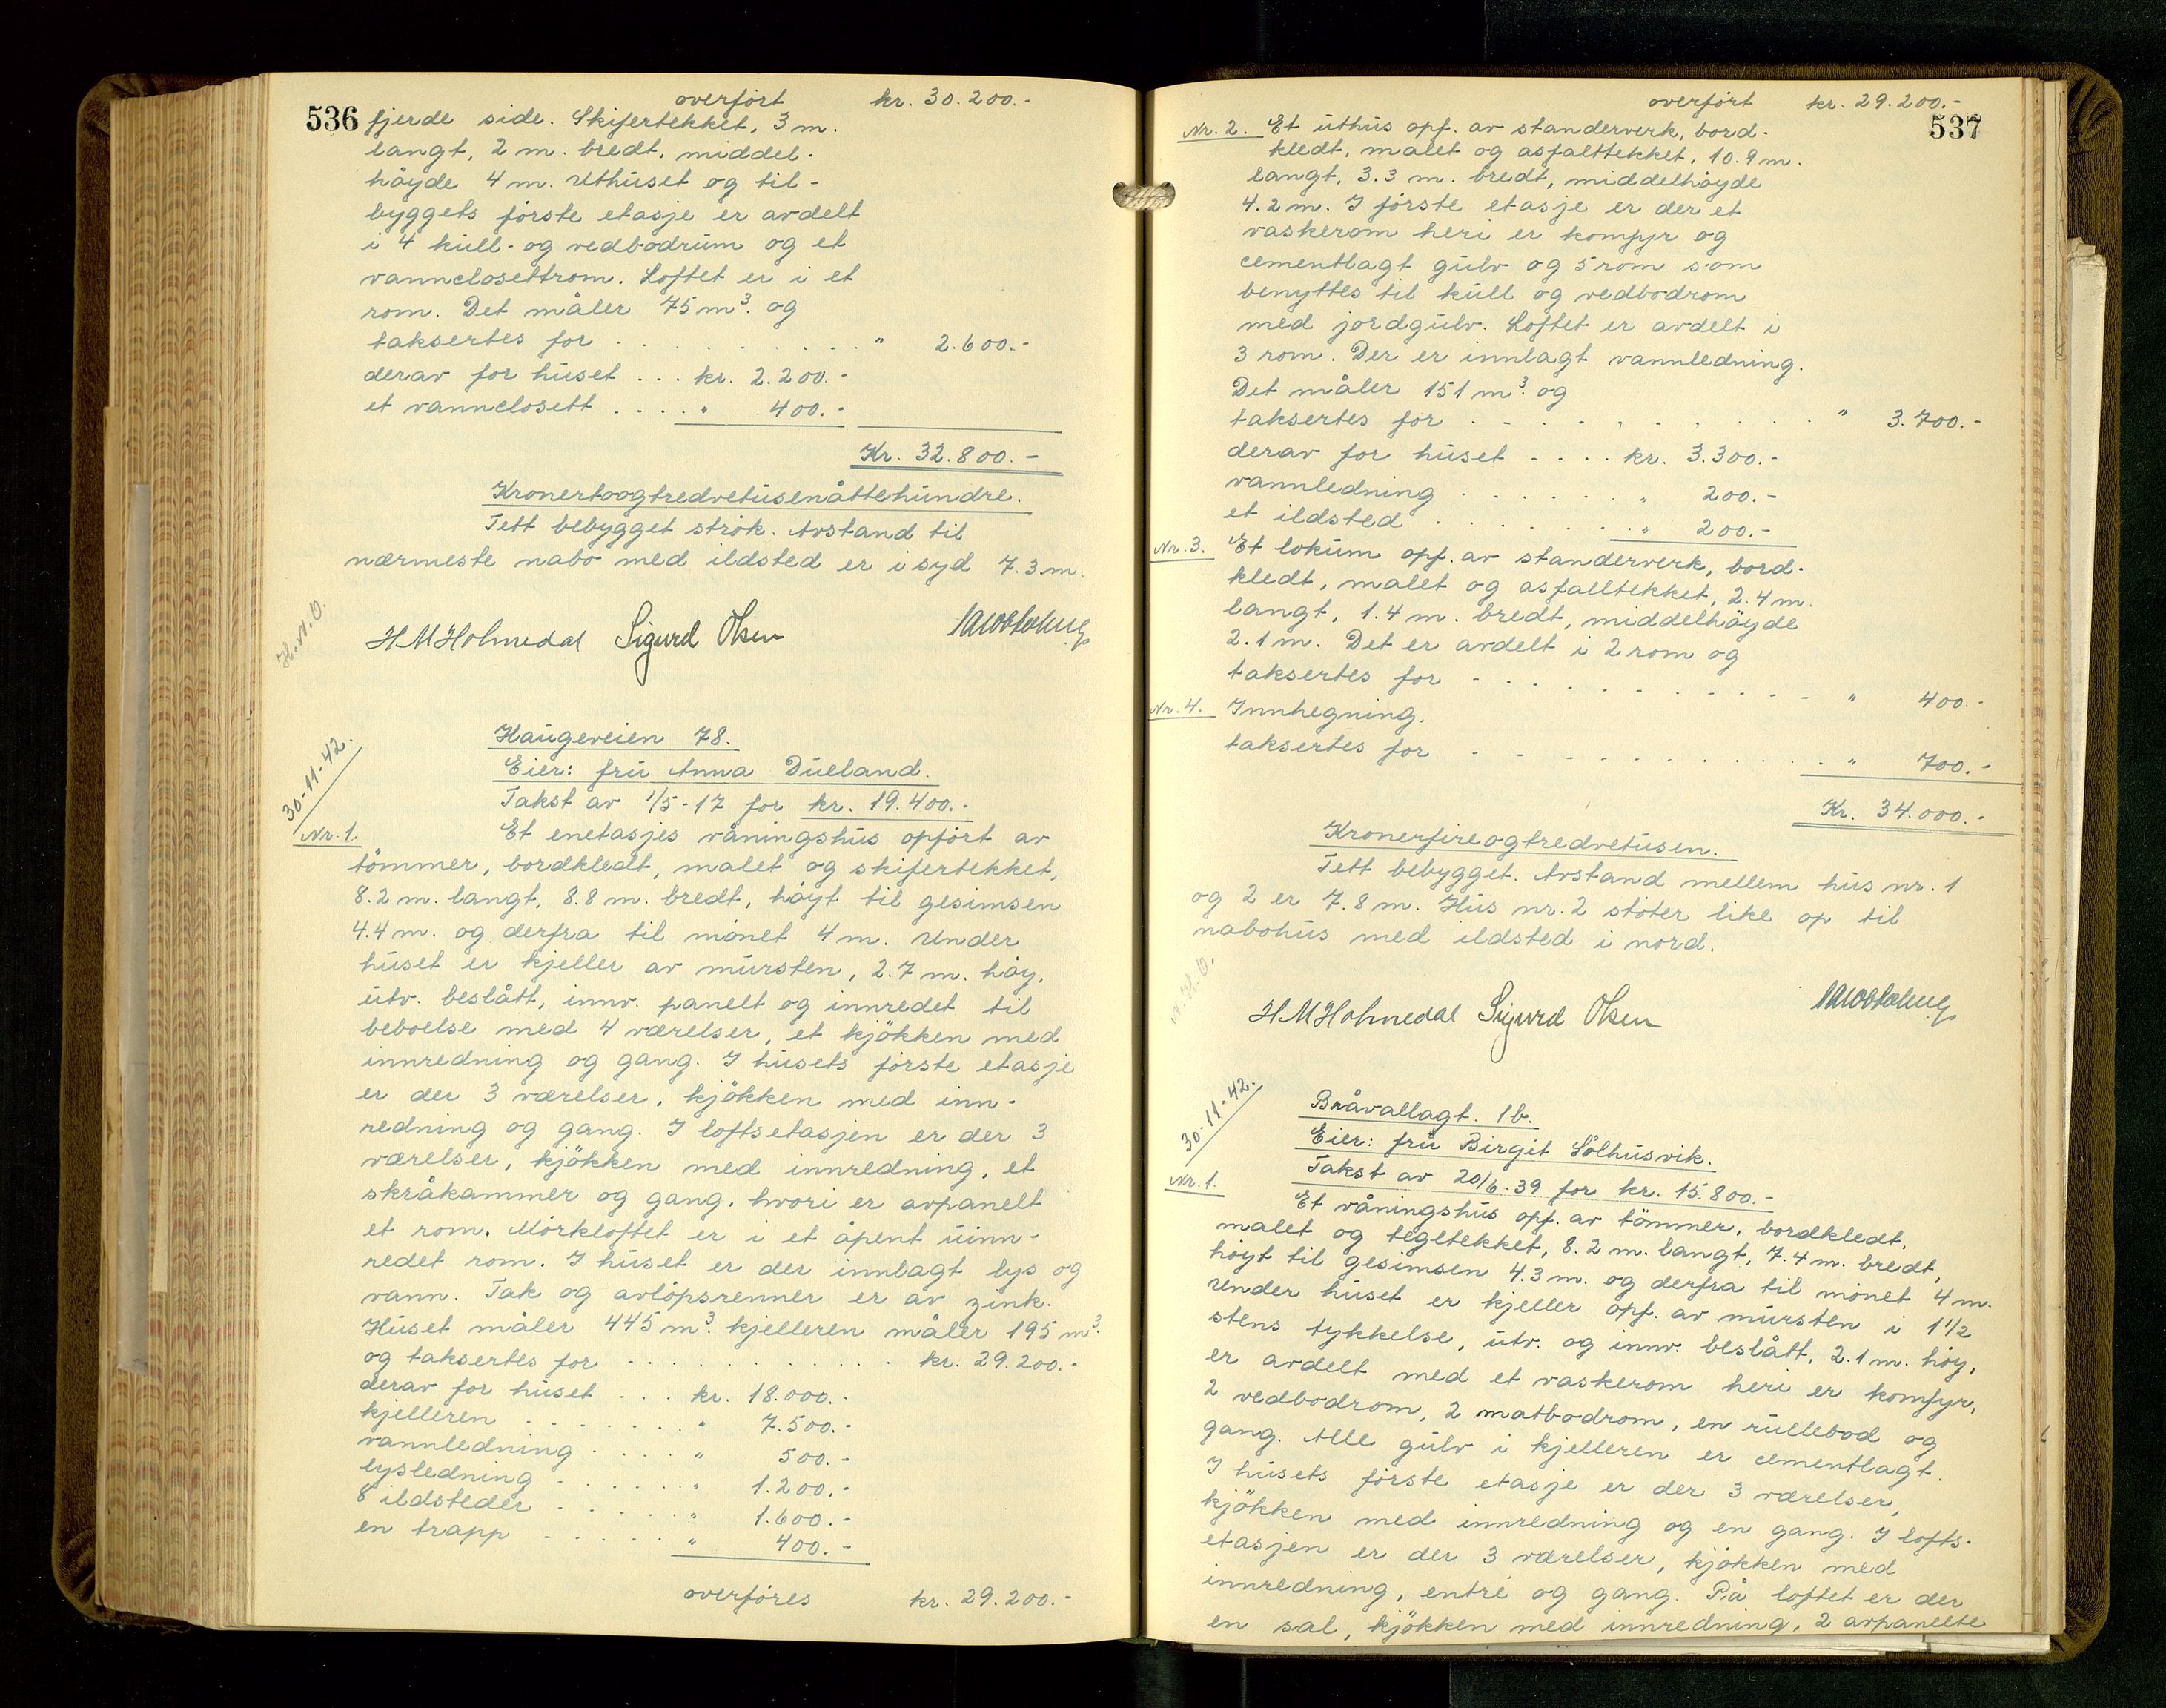 overført kr. 30.200.-
536 fjerde side. Skifertekket, 3 m.
langt, 2 m. bredt, middel-
høyde 4 m. Uthuset og til-
byggets første etasje er avdelt
i 4 kull- og vedbodrum og et
vannclosettrom. Loftet er i et
rom. Det måler 75 m³. og
taksertes for . . . . . . . . . . " 2.600.-
derav for huset . . . kr. 2.200.-
et vannclosett . . . . " 400.-
Kr. 32.800.-
Kronertoogtredvetusenåttehundre.
Tett bebygget strøk. Avstand til
nærmeste nabo med ildsted er i syd 7.3 m.
H.N.O.
H M Holmedal Sigurd Olsen
Haugeveien 78.
Eier: fru Anna Dueland.
30-11-42.
Takst av 1/5-17 for kr. 19.400.-
Nr. 1. Et enetasjes våningshus opført av
tömmer, bordkledt, malet og skifertekket,
8.2 m. langt, 8.8 m. bredt, høyt til gesimsen
4.4 m. og derfra til mønet 4 m. Under
huset er kjeller av mursten, 2.7 m. høy,
utv. beslått, innv. panelt og innredet til
beboelse med 4 værelser, et kjökken med
innredning og gang. I husets første etasje
er der 3 værelser, kjökken med inn-
redning og gang. I loftsetasjen er der 3
værelser, kjökken med innredning, et
skråkammer og gang, hvori er avpanelt
et rom. Mørkloftet er i et åpent uinn-
redet rom. I huset er der innlagt lys og
vann. Tak og avløpsrenner er av zink.
Huset måler 445 m³. kjelleren måler 195 m³.
og taksertes for . . . . . . . . . . . kr. 29.200.-
derav for huset . . . kr. 18.000.-
kjelleren . . . . . . . " 7.500.-
vannledning . . . . " 500.-
lysledning . . . . . . " 1.200.-
8 ildsteder . . . . . . " 1.600.-
en trapp . . . . . . " 400.-
overføres kr. 29.200.-
overført kr. 29.200.-
537
Nr. 2. Et uthus opf. av standerverk, bord-
kledt, malet og asfalttekket, 10.9 m.
langt, 3.3 m. bredt, middelhøyde
4.2 m. I første etasje er der et
vaskerom heri er komfyr og
cementlagt gulv og 5 rom som
benyttes til kull og vedbodrom
med jordgulv. Loftet er avdelt i
3 rom. Der er innlagt vannledning.
Det måler 151 m³. og
taksertes for . . . . . . . . . . . " 3.700.-
derav for huset . . . . kr. 3.300.-
vannledning . . . . . . . " 200.-
et ildsted . . . . . . . . " 200.-
Nr. 3. Et lokum opf. av standerverk, bord-
kledt, malet og asfalttekket, 2.4 m.
langt, 1.4 m. bredt, middelhøyde
2.1 m. Det er avdelt i 2 rom og
taksertes for . . . . . . . . . . . . " 400.-
Nr. 4. Innhegning.
taksertes for . . . . . . . . . . . . " 700.-
Kr. 34.000.-
Kronerfireogtredvetusen.
Tett bebygget. Avstand mellem hus nr. 1
og 2 er 7.8 m. Hus nr. 2 støter like op til
nabohus med ildsted i nord.
N.H.O.
H M Holmedal Sigurd Olsen
30-11-42.
Bråvallagt. 1b.
Eier: fru Birgit Sölhusvik.
Takst av 20/6.39 for kr. 15.800.-
Nr. 1. Et våningshus opf. av tömmer, bordkledt,
malet og tegltekket, 8.2 m. langt, 7.4 m. bredt,
høyt til gesimsen 4.3 m. og derfra til mønet 4 m.
Under huset er kjeller opf. av mursten i 1 1/2
stens tykkelse, utv. og innv. beslått, 2.1 m. høy,
er avdelt med et vaskerom heri er komfyr,
2 vedbodrom, 2 matbodrom, en rullebod og
gang. Alle gulv i kjelleren er cementlagt.
I husets første etasje er der 3 værelser,
kjökken med innredning og en gang. I lofts-
etasjen er der 3 værelser, kjökken med
innredning, entré og gang. På loftet er der
en sal, kjökken med innredning, 2 avpanelte